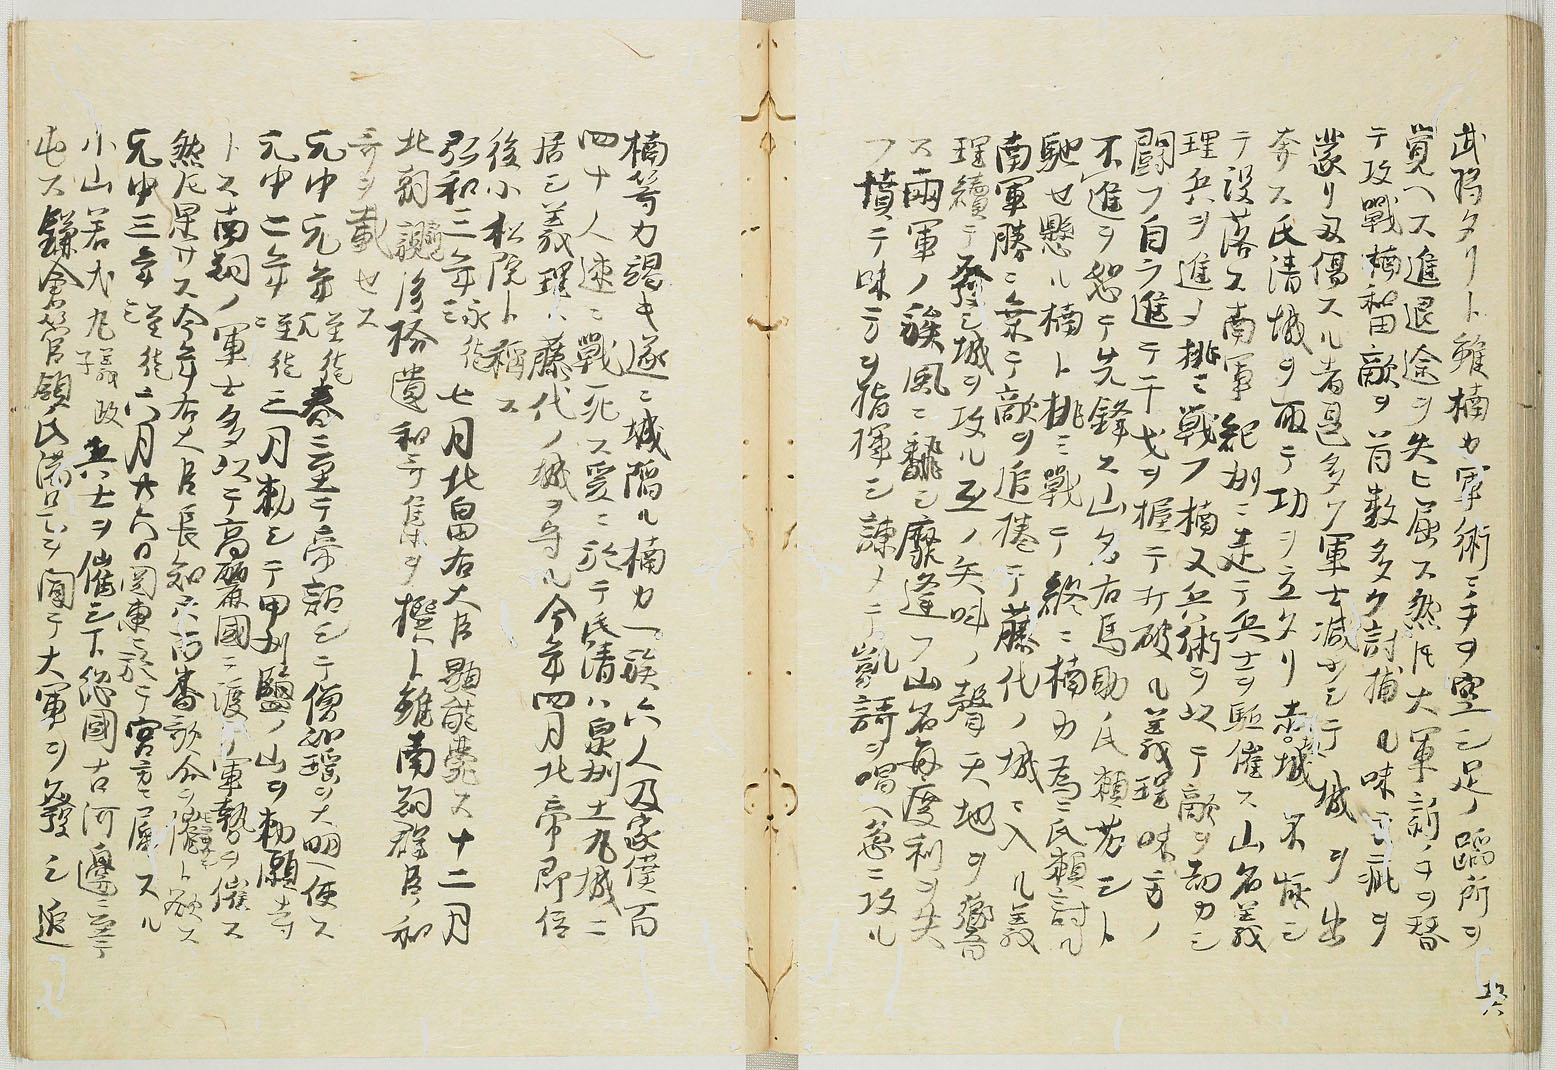 武将タリト雖楠カ軍術ミチヲ塞ミ足ノ蹈所ヲ
覚ヘス進退途ヲ失ヒ屈ス然圧大軍新手ヲ替
テ攻戰楠和田敵ヲ首数多ク討捕ル味方疵ヲ
蒙リ匁傷スル者邑多ク軍士減少シテ城ヲ出
奔ス氏清城ヲ取テ功ヲ立タリ赤城不疲シ
テ没落ス南軍紀州ニ走テ兵士ヲ駈催ス山名義
理兵ヲ進メ挑ミ戦フ楠又兵術ヲ以テ敵ヲ劫カシ
闘フ自ラ進テ干戈ヲ握テ打破ル義理味方ノ
不進ヲ怒テ先鋒ス山名右馬助氏頼若シト
馳セ懸ル楠ト挑ミ戰テ終ニ楠カ為ニ氏頼討ル
南軍勝ニ乗テ敵ヲ追捲テ藤代ノ城ニ入ル義
理續テ發シ城ヲ攻ル互ノ矢叫ノ聲天地ヲ響
ス兩軍ノ簱風ニ飜シ靡逢フ山名毎度利ヲ失
フ憤テ味方ヲ指揮シ諫メテ凱謌ヲ唱ヘ急ニ攻ル
楠等力竭キ遂ニ城陥ル楠カ一族六人及家僕百
四十人速ニ戰死ス爰ニ於テ氏清ハ泉州土丸城ニ
居シ義理ハ藤代ノ城ヲ守ル今年四月北帝即位
後小松院ト稱ス
弘和三年永徳三七月北畠右大臣顕能薨ス十二月
北朝新後拾遺和哥集ヲ撰ト雖南朝群臣ノ和
哥ヲ載セス
元中元年至徳元春二至テ帝詔シテ僧如瑶ヲ大明ヘ使ス
元中二年至徳二三月勅シテ甲州鹽ノ山ヲ勅願寺
トス南朝ノ軍士多ク以テ高麗國ニ渡ノ軍勢ヲ催ス
然圧果サス今年右大臣長知哥番歌合ヲ催ト欲ス
元中三年至徳三六月廾六日関東ニ於テ宮方ニ属スル
小山若犬丸義政子兵士ヲ催シ下総國古河邊ニ至テ
屯ス鎌倉管領氏満是ヲ聞テ大軍ヲ發シ追